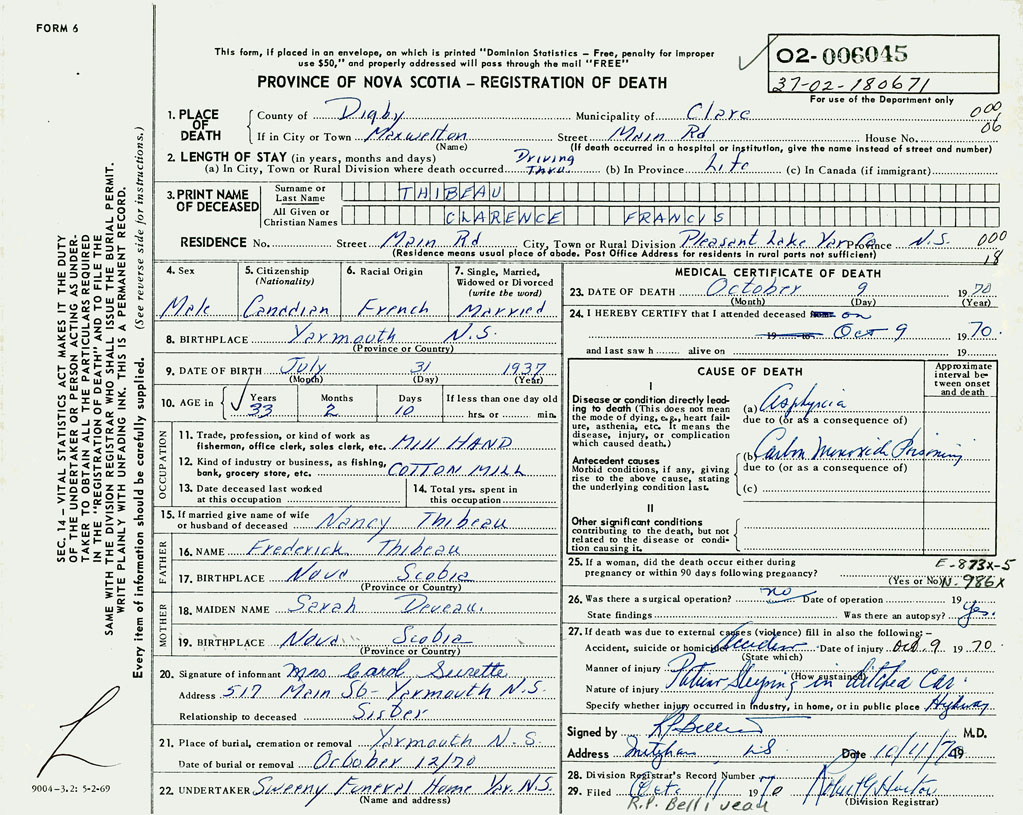 FORM 6
This form, if placed in an envelope, on which is printed "Dominion Statistics – Free, penalty for improper
use $50," and properly addressed will pass through the mail "FREE"
PROVINCE OF NOVA SCOTIA – REGISTRATION OF DEATH
02-006045
37-02-180671
For use of the Department only
1. PLACE OF DEATH
County of Digby Municipality of Clare 000
06
If in City or Town Maxwelton Street Main Rd House No.
(Name) (If death occurred in a hospital or institution, give the name instead of street and number)
2. LENGTH OF STAY (in years, months and days) Driving
(a) In City, Town or Rural Division where death occurred Thru (b) In Province Life (c) In Canada (if immigrant)
3. PRINT NAME OF DECEASED
Surname or Last Name THIBEAU
All Given or Christian Names CLARENCE FRANCIS
RESIDENCE No. Street Main Rd City, Town or Rural Division Pleasant Lake Yar Co Province N.S. 000
18
(Residence means usual place of abode. Post Office Address for residents in rural parts not sufficient)
4. Sex
Male
5. Citizenship
(Nationality)
Canadian
6. Racial Origin
French
7. Single, Married,
Widowed or Divorced
(write the word)
Married
8. BIRTHPLACE Yarmouth N.S.
(Province or Country)
9. DATE OF BIRTH July 31 1937
(Month) (Day) (Year)
10. AGE in
Years Months Days If less than one day old
33 2 10 hrs. or min.
OCCUPATION
11. Trade, profession, or kind of work as
fisherman, office clerk, sales clerk, etc. MILL HAND
12. Kind of industry or business, as fishing,
bank, grocery store, etc. COTTON MILL
13. Date deceased last worked
at this occupation
14. Total yrs. spent in
this occupation
15. If married give name of wife
or husband of deceased Nancy Thibeau
FATHER
16. NAME Frederick Thibeau
17. BIRTHPLACE Nova Scobia
(Province or Country)
MOTHER
18. MAIDEN NAME Sarah Deveau.
19. BIRTHPLACE Nova Scobia
(Province or Country)
20. Signature of informant Mrs Carol Surette
Address 517 Main St- Yarmouth N.S.
Relationship to deceased Sister
21. Place of burial, cremation or removal Yarmouth N.S.
Date of burial or removal October 12/70
22. UNDERTAKER Sweeny Funeral Home Yar. N.S.
(Name and address)
MEDICAL CERTIFICATE OF DEATH
23. DATE OF DEATH October 9 1970
(Month) (Day) (Year)
24. I HEREBY CERTIFY that I attended deceased from on
19 to Oct 9 1970.
and last saw h alive on 19
CAUSE OF DEATH
Approximate
interval be-
tween onset
and death
I
Disease or condition directly lead-
ing to death (This does not mean
the mode of dying, e.g., heart fail-
ure, asthenia, etc. It means the
disease, injury, or complication
which caused death.)
(a) Asphyxia
due to (or as a consequence of)
Antecedent causes
Morbid conditions, if any, giving
rise to the above cause, stating
the underlying condition last.
(b) Carbon Monoxide Poisoning
due to (or as a consequence of)
(c)
II
Other significant conditions
contributing to the death, but not
related to the disease or condi-
tion causing it.
25. If a woman, did the death occur either during
pregnancy or within 90 days following pregnancy?
(Yes or No)
E-873x-5
N-986X
26. Was there a surgical operation? no Date of operation 19
State findings Was there an autopsy? Yes.
27. If death was due to external causes (violence) fill in also the following:–
Accident, suicide or homicide Accident Date of injury Oct. 9 1970.
(State which)
Manner of injury
(How sustained)
Nature of injury Sleeping in ditched Car.
Specify whether injury occurred in industry, in home, or in public place Highway
Signed by M.D.
Address Date 10/11/70 19
28. Division Registrar's Record Number 77
29. Filed Oct 11 1970
(Division Registrar)
R.P. Belliveau
SEC. 14 – VITAL STATISTICS ACT MAKES IT THE DUTY
OF THE UNDERTAKER OR PERSON ACTING AS UNDER-
TAKER TO OBTAIN ALL THE PARTICULARS REQUIRED
IN THE "REGISTRATION OF DEATH" AND TO FILE THE
SAME WITH THE DIVISION REGISTRAR WHO SHALL ISSUE THE BURIAL PERMIT.
WRITE PLAINLY WITH UNFADING INK. THIS IS A PERMANENT RECORD.
Every item of information should be carefully supplied. (See reverse side for instructions.)
9004-3.2: 5-2-69